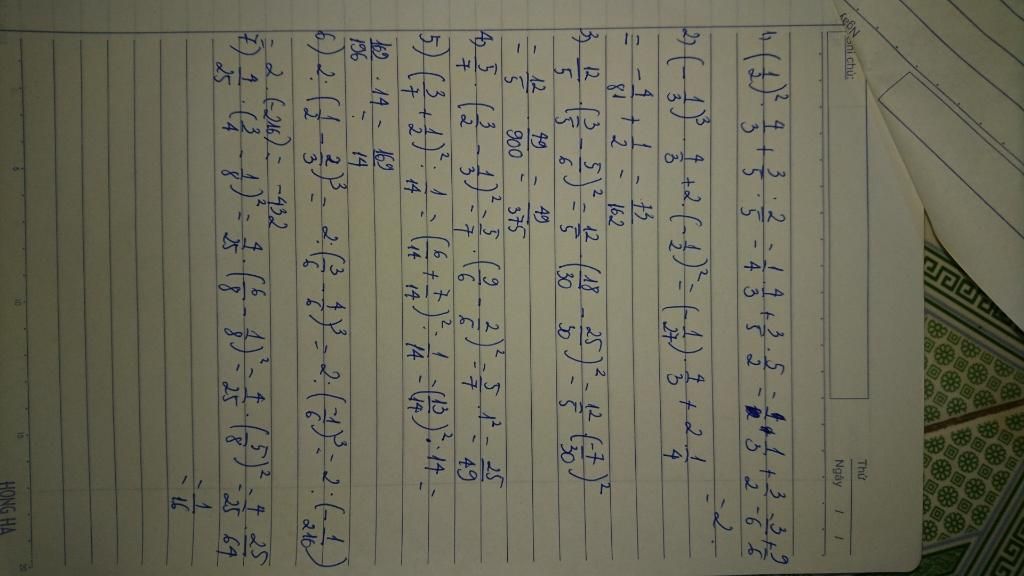 Ngày ghi chú:
Thứ
Ngày / /
1) (1/2)² . 4/3 + 3/5 : 2/5 = 1/4 . 4/3 + 3/5 . 5/2 = 1/3 + 3/2 =
= 2.
2) (-1/3)³ . 4/3 + 2 (-1/2)² = (-1/27) 4/3 + 2 . 1/4
= -4/81 + 1/2 = 73/162
3) 12/5 . (3/5 - 5/6)² = 12/5 . (18/30 - 25/30)² = 12/5 (-7/30)²
= 12/5 . 49/900 = 49/375
4) 5/7 . (3/2 - 1/3)² = 5/7 . (9/6 - 2/6)² = 5/7 . 1² = 25/49
5) (3/7 + 1/2)² : 1/14 = (6/14 + 7/14)² : 1/14 = (13/14)² . 14 =
169/196 . 14 = 169/14
6) 2 : (1/2 - 2/3)³ = 2 : (3/6 - 4/6)³ = 2 . (-1/6)³ = 2 : (-1/216)
= 2 . (-216) = -432
7) 4/25 . (3/4 - 1/8)² = 4/25 . (6/8 - 1/8)² = 4/25 . (5/8)² = 4/25 . 25/64
= 1/16
HONG HA